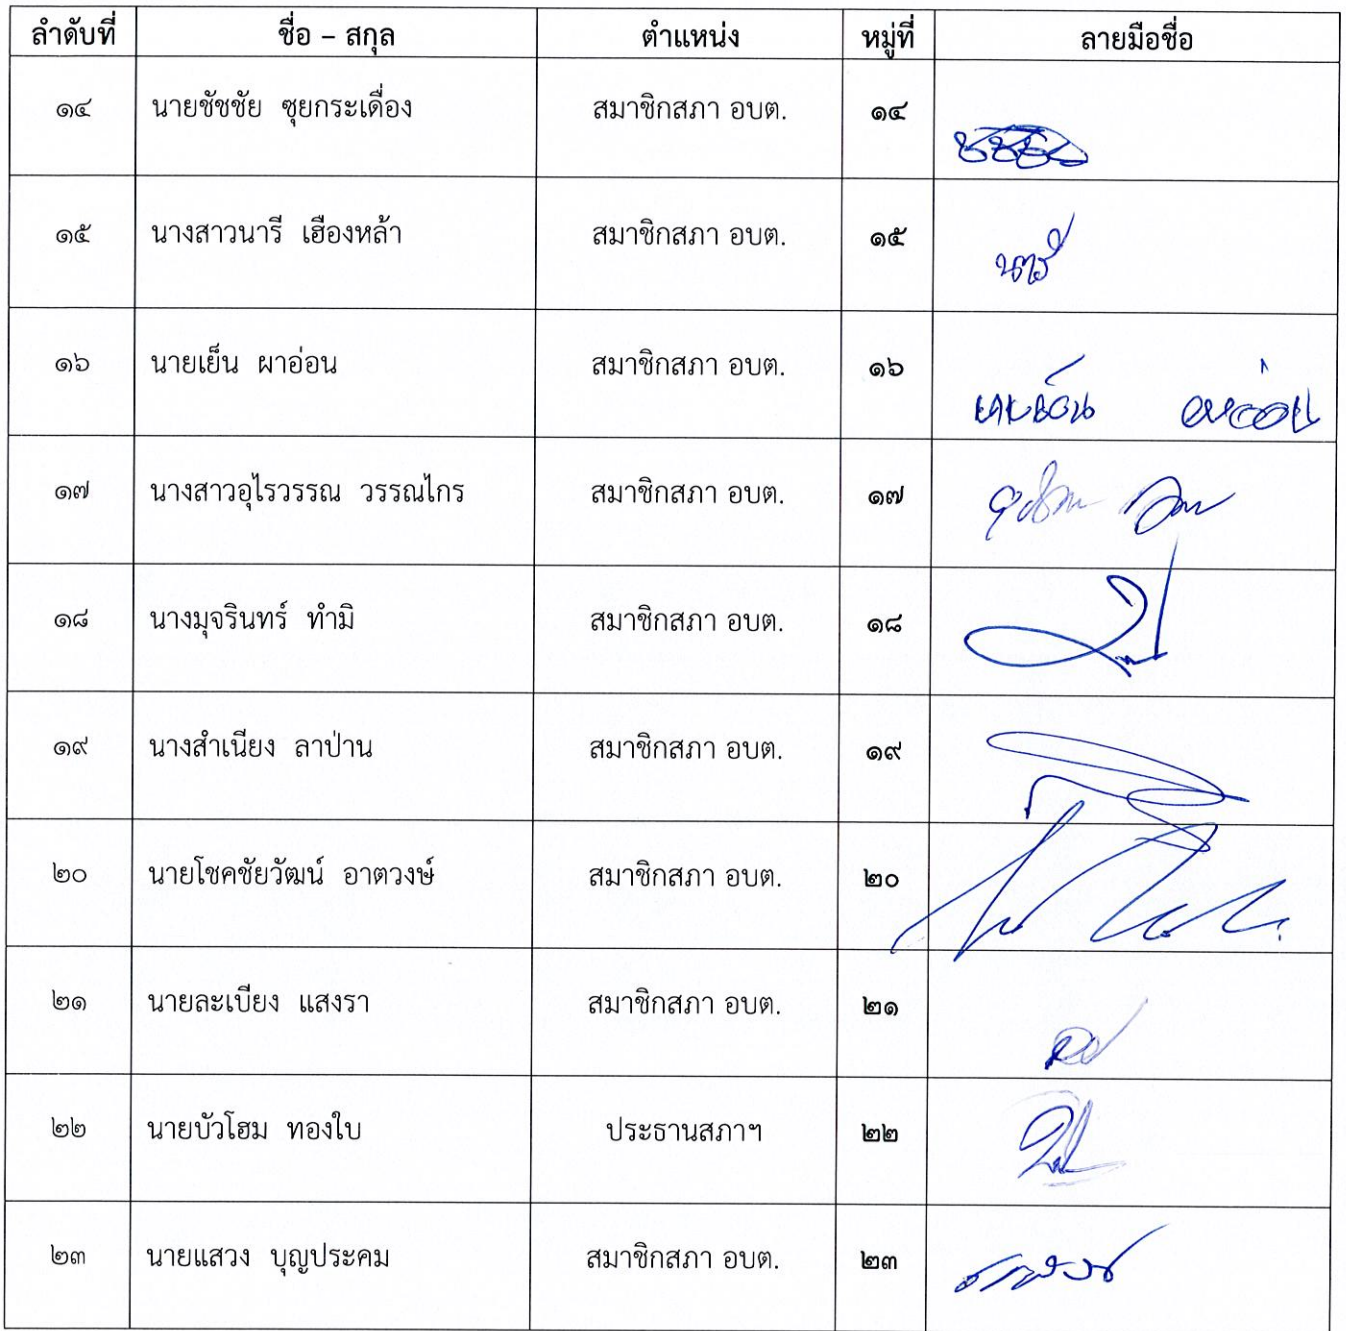 ลำดับที่ ชื่อ – สกุล ตำแหน่ง หมู่ที่ ลายมือชื่อ
๑๔ นายชัชชัย ซุยกระเดื่อง สมาชิกสภา อบต. ๑๔
๑๕ นางสาวนารี เฮืองหล้า สมาชิกสภา อบต. ๑๕ นารี
๑๖ นายเย็น ผาอ่อน สมาชิกสภา อบต. ๑๖
๑๗ นางสาวอุไรวรรณ วรรณไกร สมาชิกสภา อบต. ๑๗
๑๘ นางมุจรินทร์ ทำมิ สมาชิกสภา อบต. ๑๘
๑๙ นางสำเนียง ลาป่าน สมาชิกสภา อบต. ๑๙
๒๐ นายโชคชัยวัฒน์ อาตวงษ์ สมาชิกสภา อบต. ๒๐
๒๑ นายละเบียง แสงรา สมาชิกสภา อบต. ๒๑
๒๒ นายบัวโฮม ทองใบ ประธานสภาฯ ๒๒
๒๓ นายแสวง บุญประคม สมาชิกสภา อบต. ๒๓